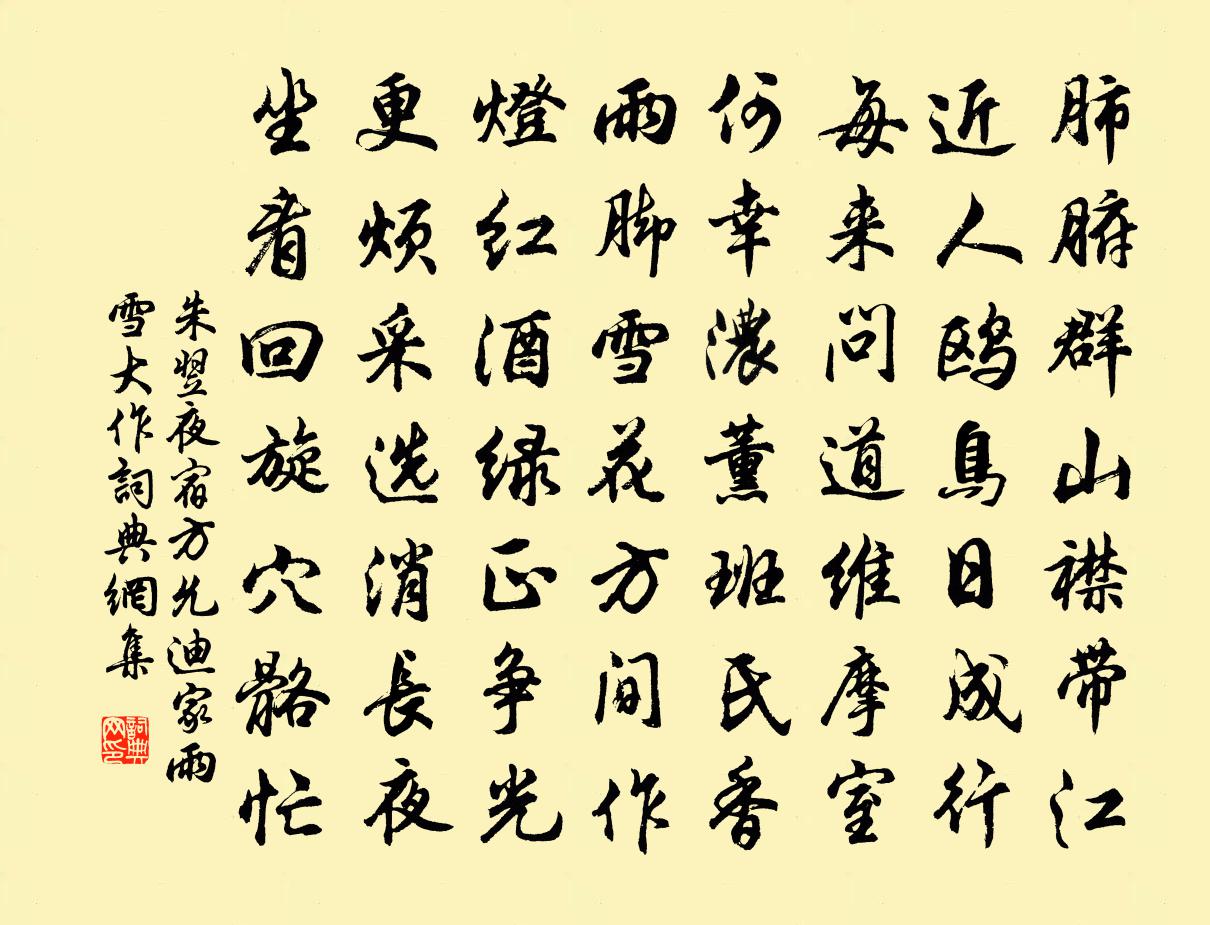 肺腑群山襟带江
近人鸥鳥日成行
每来问道维摩室
何幸濃薰班氏香
雨脚雪花方间作
燈红酒绿正争光
更烦采选消長夜
坐看回旋穴骼忙
朱翌夜宿方允迪家雨
雪大作詞典網集
詞典网印